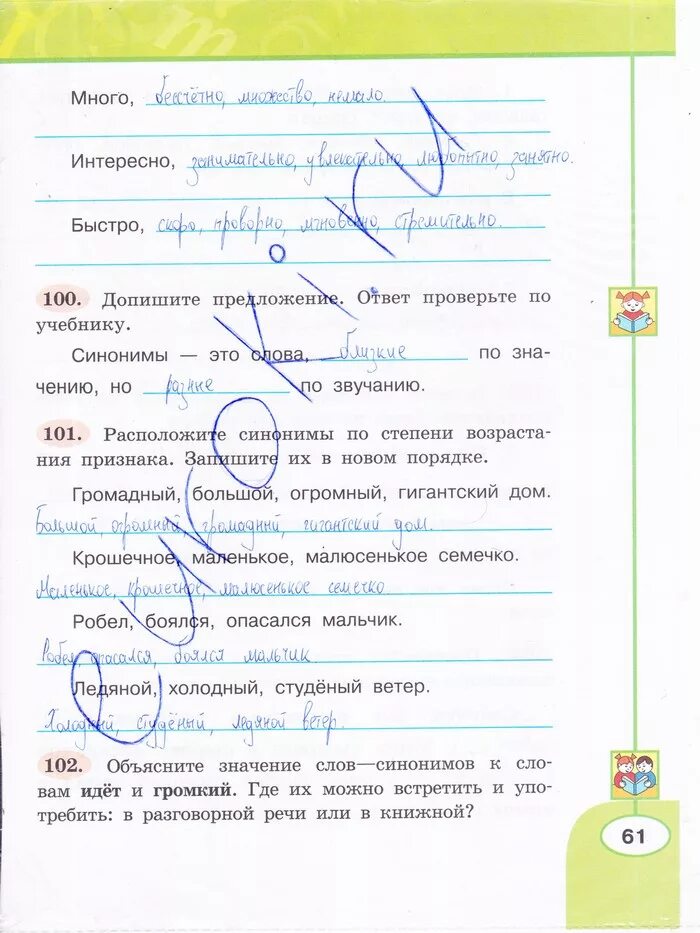 Много, бессчётно, множество, немало.
Интересно, занимательно, увлекательно, любопытно, занятно.
Быстро, скоро, проворно, мгновенно, стремительно.
100. Допишите предложение. Ответ проверьте по
учебнику.
Синонимы — это слова, близкие по зна-
чению, но разные по звучанию.
101. Расположите синонимы по степени возраста-
ния признака. Запишите их в новом порядке.
Громадный, большой, огромный, гигантский дом.
Большой, огромный, громадный, гигантский дом.
Крошечное, маленькое, малюсенькое семечко.
Маленькое, крошечное, малюсенькое семечко
Робел, боялся, опасался мальчик.
Робел, опасался, боялся мальчик
Ледяной, холодный, студёный ветер.
Холодный, студёный, ледяной ветер.
102. Объясните значение слов—синонимов к сло-
вам идёт и громкий. Где их можно встретить и упо-
требить: в разговорной речи или в книжной?
61